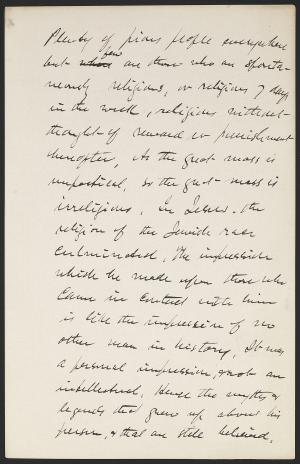 Plenty of pious people everywhere
but few are there who are sponta-
neously religious, or religious 7 days
in the week, religious without
thought of reward or punishment
hereafter. As the great mass is
unpoetical, so the great mass is
irreligious. In Jesus, the
religion of the Jewish race
culminated. The impression
which he made upon those who
came in contact with him
is like the impression of no
other man in history. It was
a personal impression, & not an
intellectual. Hence the myths &
legends that grew up about his
person, & that are still believed.